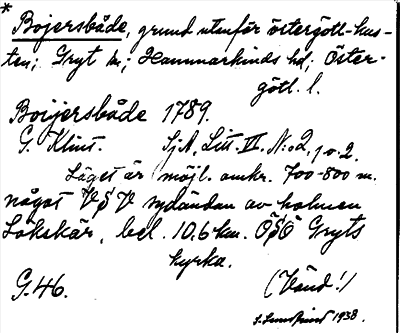 *
Bojersbåde, grund utanför östergötl-kus-
ten; Gryt sn; Hammarkinds hd; Öster-
götl. l.
Boijersbåde 1789.
G. Klint. SjA, Litt. III. N:o 2, 1 o. 2.
Läget är möjl. omkr. 700-800 m.
något VSV sydändan av holmen
Lökskär, bel. 10,6 km. ÖSÖ Gryts
kyrka.
G.46. (Vänd!)
1938.